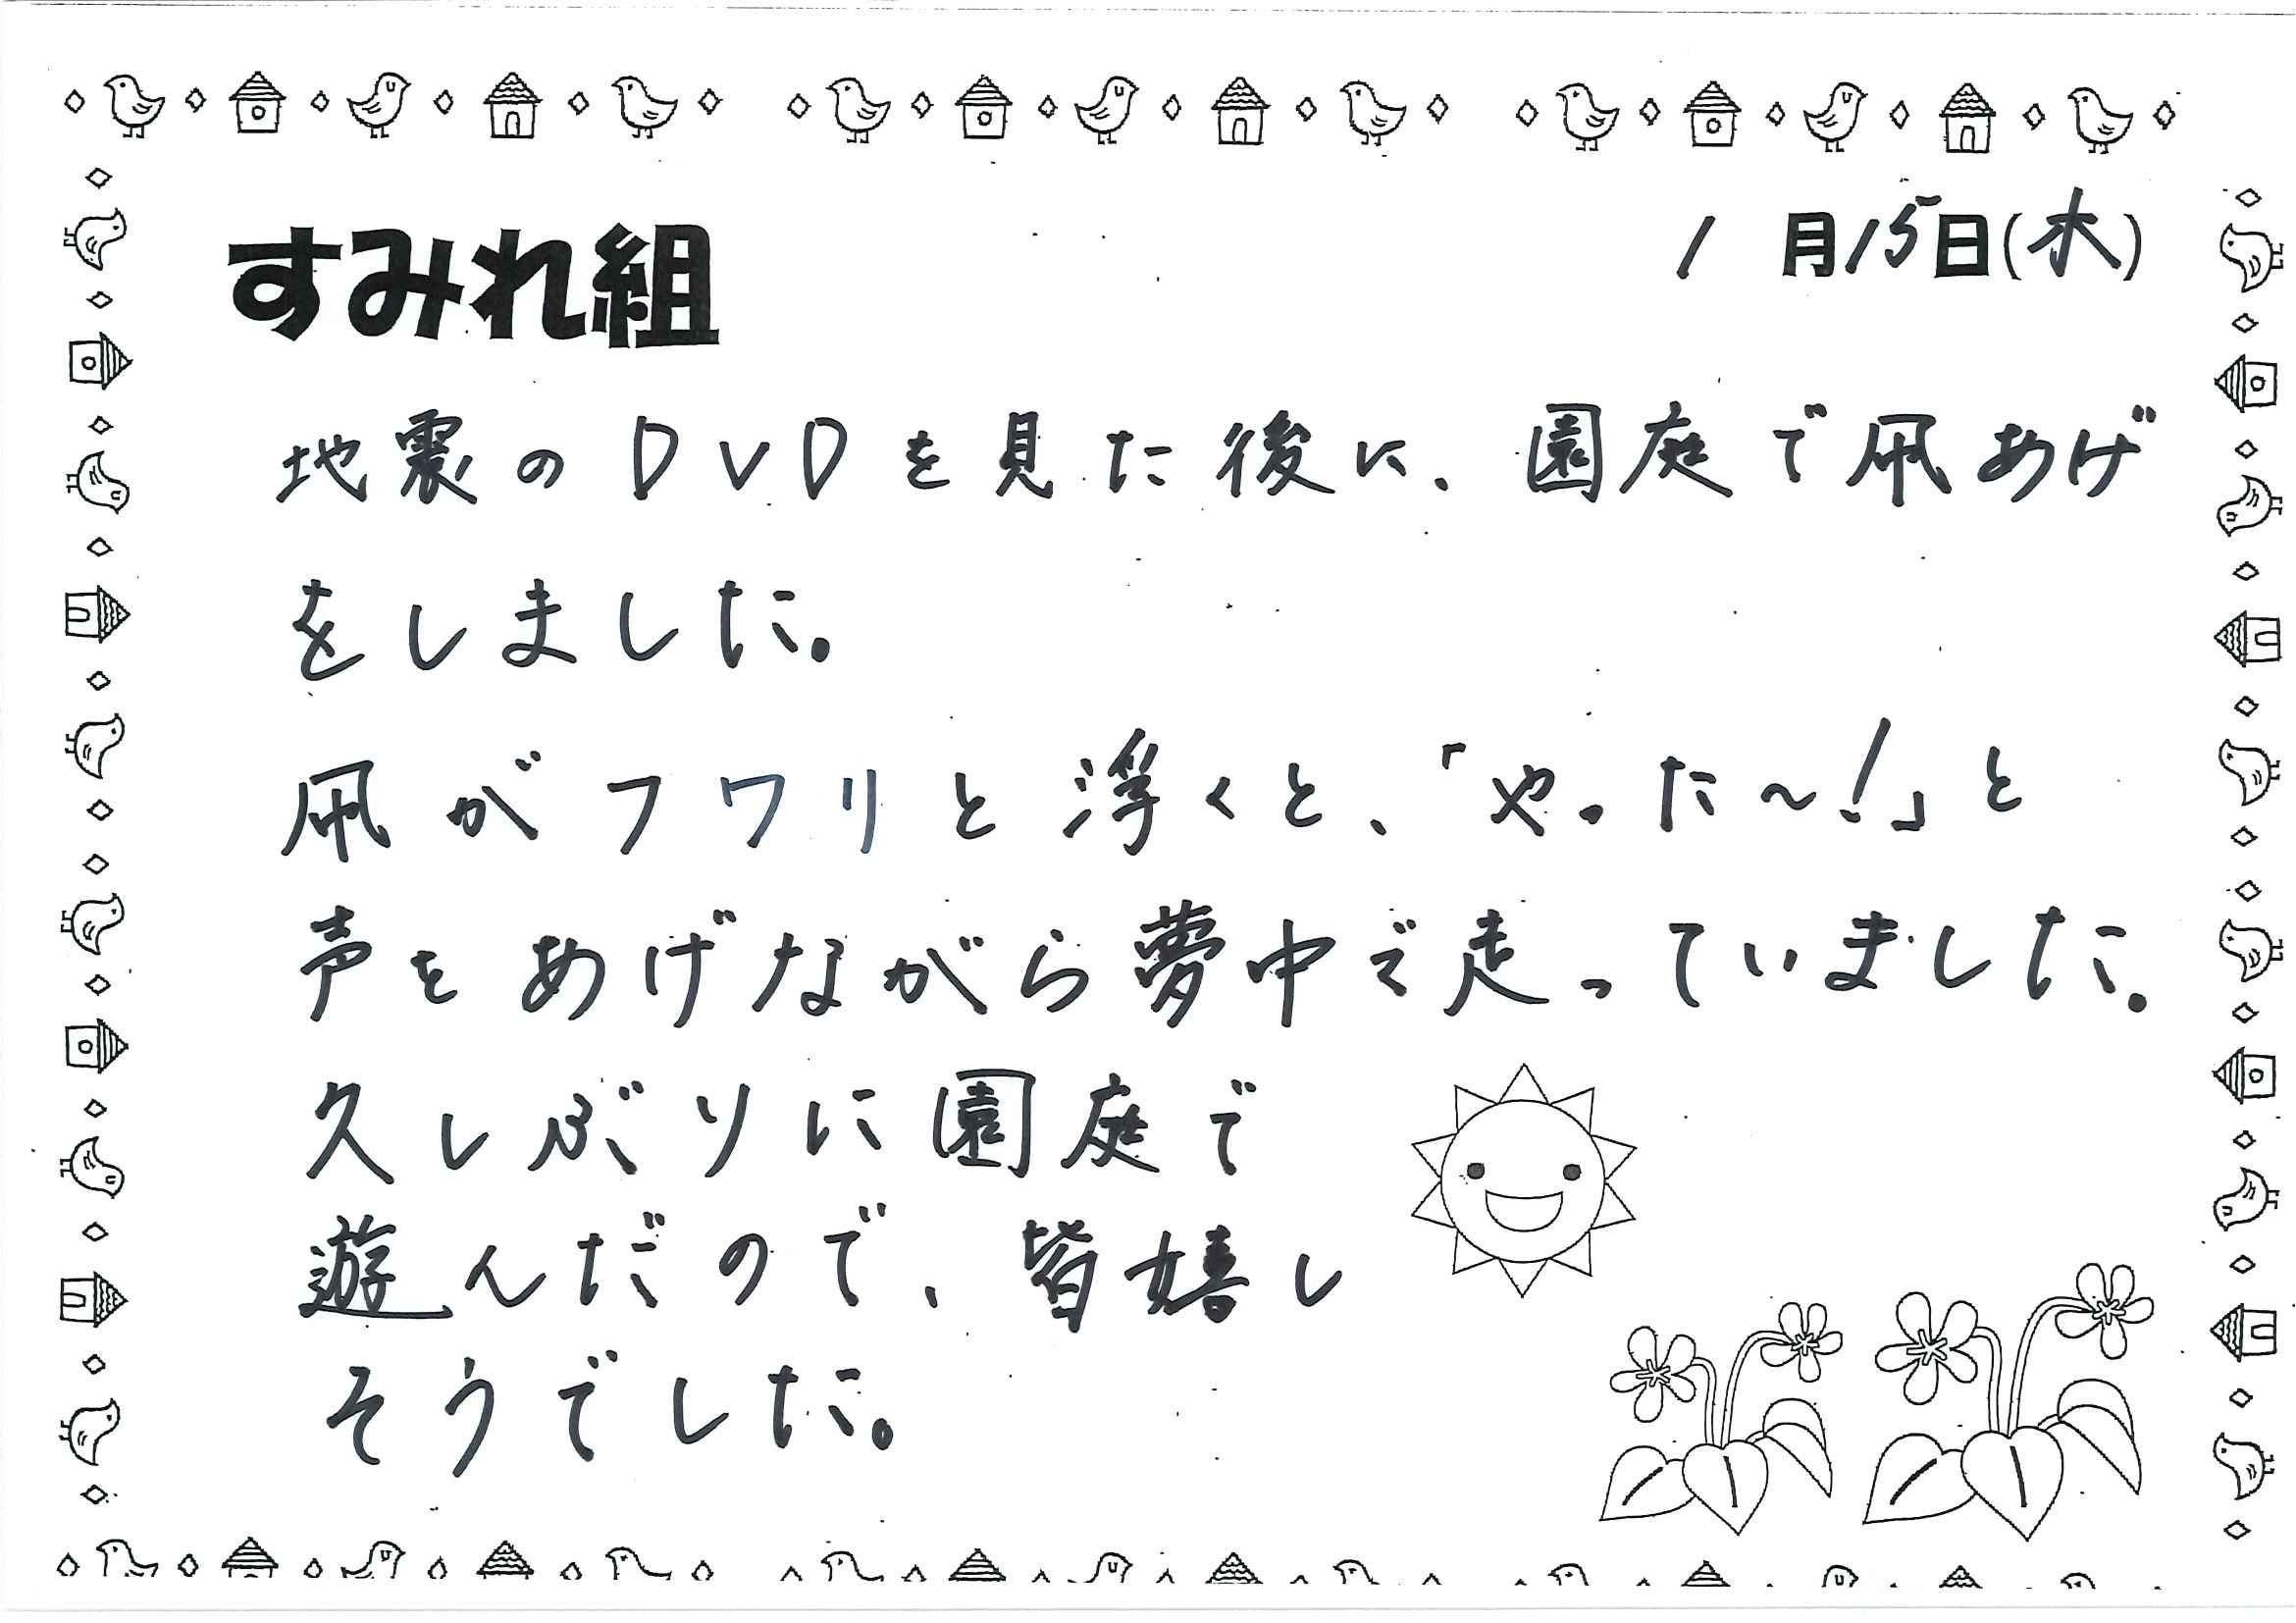 すみれ組
1月15日(水)
地震のDVDを見た後に、園庭で凧あげ
をしました。
凧がフワリと浮くと、「やった〜!」と
声をあげながら夢中で走っていました。
久しぶりに園庭で
遊んだので、皆嬉し
そうでした。